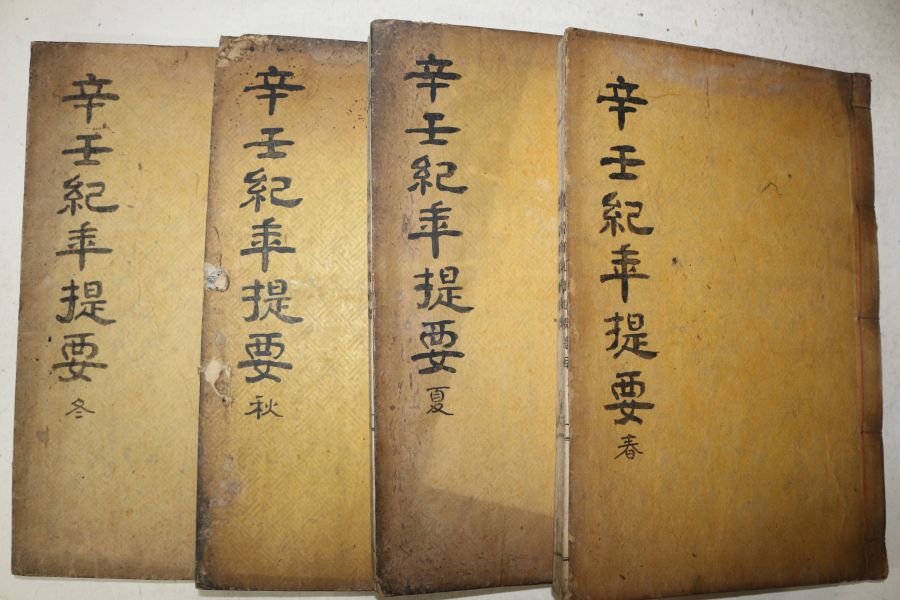 辛壬紀年提要 春
辛壬紀年提要 夏
辛壬紀年提要 秋
辛壬紀年提要 冬